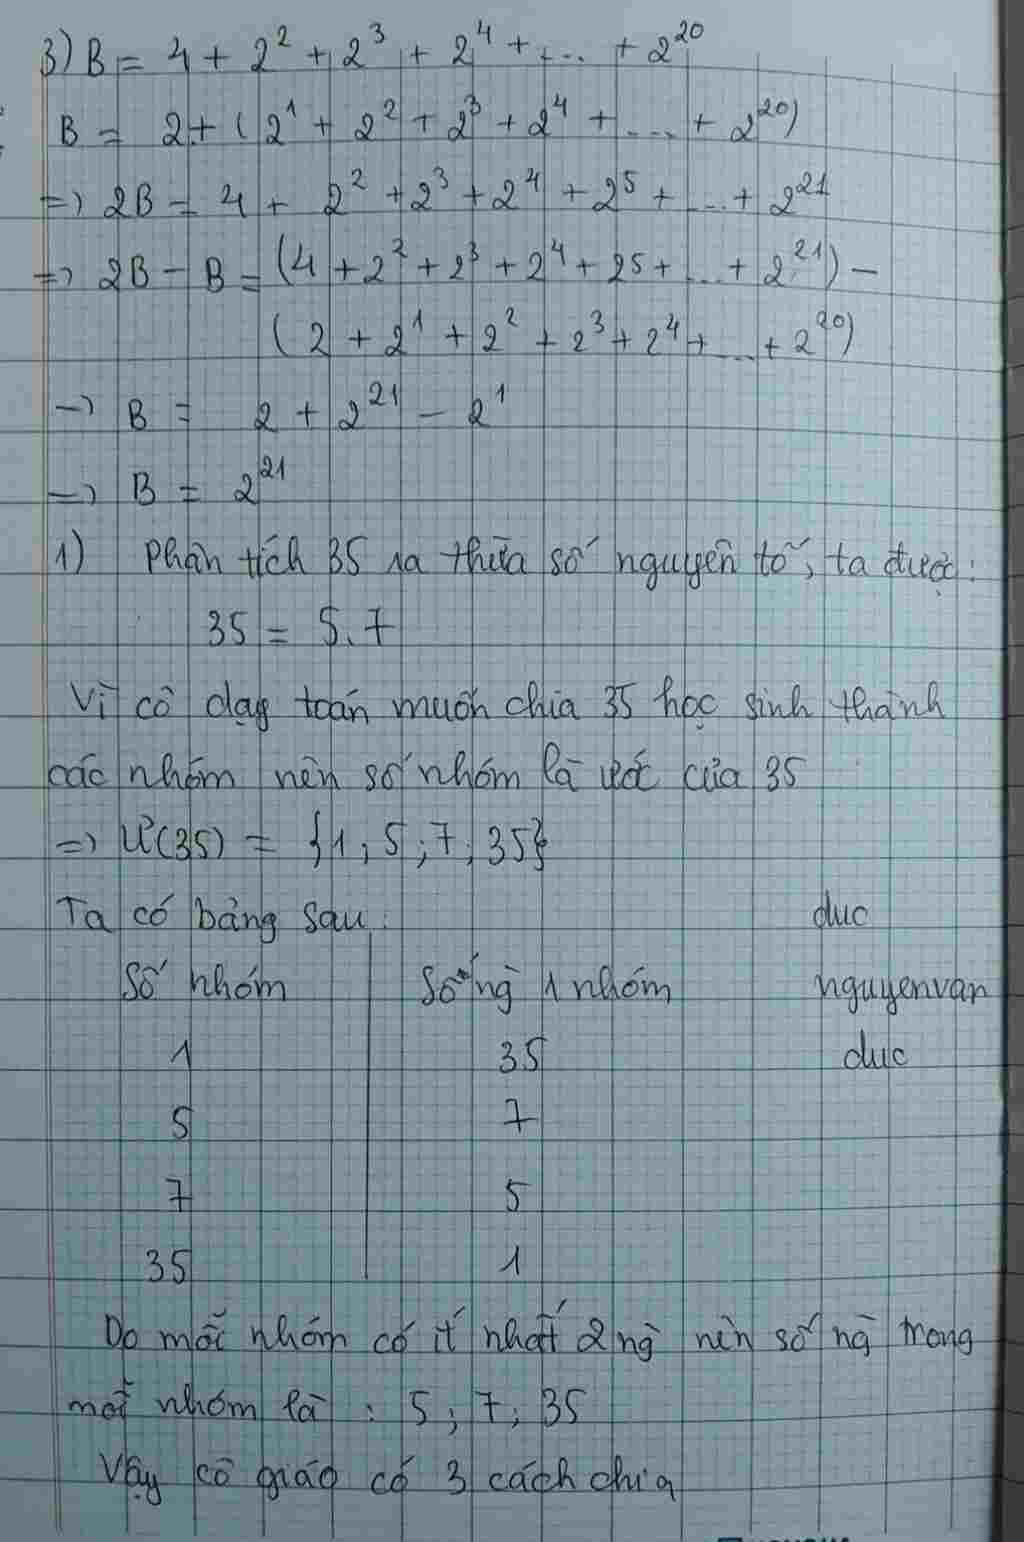 3) B = 4 + 2² + 2³ + 2⁴ + ... + 2²⁰
B = 2 + (2¹ + 2² + 2³ + 2⁴ + ... + 2²⁰)
=) 2B = 4 + 2² + 2³ + 2⁴ + 2⁵ + ... + 2²¹
=) 2B - B = (4 + 2² + 2³ + 2⁴ + 2⁵ + ... + 2²¹) -
(2 + 2¹ + 2² + 2³ + 2⁴ + ... + 2²⁰)
=) B = 2 + 2²¹ - 2¹
=) B = 2²¹
1) Phân tích 35 ra thừa số nguyên tố, ta được:
35 = 5.7
Vì cô dạy toán muốn chia 35 học sinh thành
các nhóm nên số nhóm là ước của 35
=) Ư(35) = {1; 5; 7; 35}
Ta có bảng sau: duc
Số nhóm Số ng 1 nhóm nguyenvan
1 35 duc
5 7
7 5
35 1
Do mỗi nhóm có ít nhất 2 ng nên số ng trong
mỗi nhóm là : 5; 7; 35
Vậy cô giáo có 3 cách chia